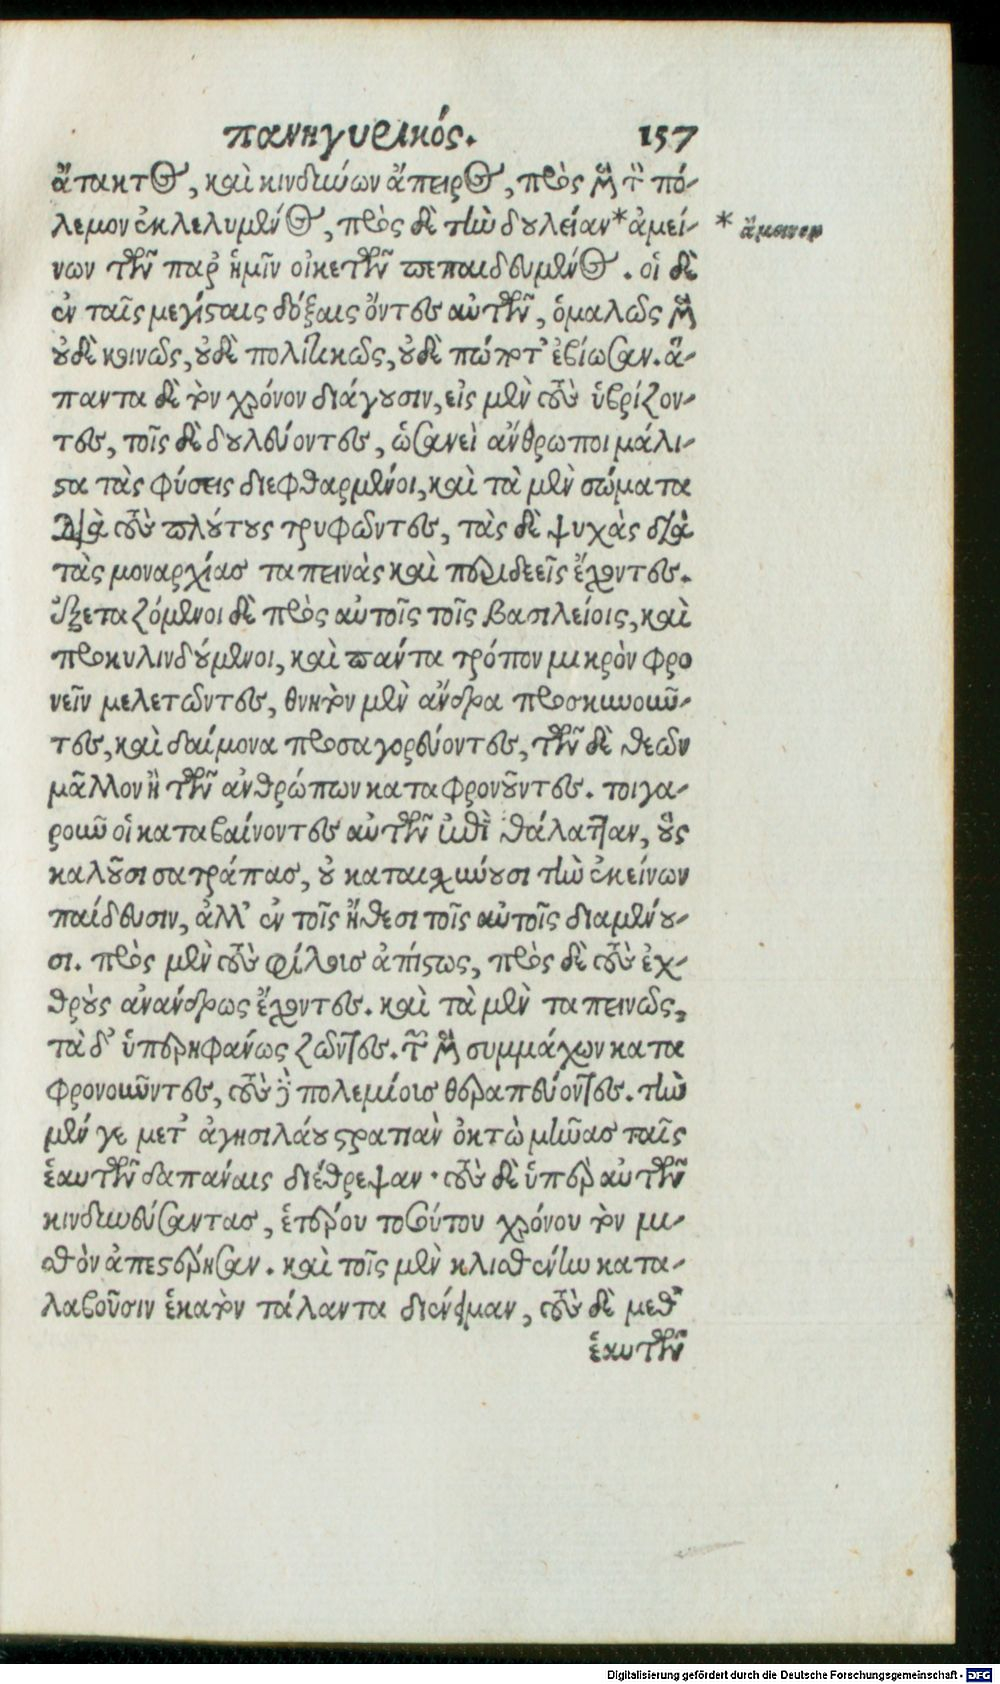 πανηγυρικός. 157
ἄτακτος, καὶ κινδύνων ἄπειρος, πρὸς μὲν τὸν πό-
λεμον ἐκλελυμένος, πρὸς δὲ τὴν δουλείαν* ἀμεί- * ἄμεινον
νων τῶν παρ' ἡμῖν οἰκετῶν πεπαιδευμένος. οἱ δὲ
ἐν ταῖς μεγίσταις δόξαις ὄντες αὐτῶν, ὁμαλῶς μὲν
οὐδὲ κοινῶς, οὐδὲ πολιτικῶς, οὐδὲ πώποτ' ἐβίωσαν. ἅ-
παντα δὲ τὸν χρόνον διάγουσιν, εἰς μὲν τοὺς ὑβρίζον-
τες, τοῖς δὲ δουλεύοντες, ὡσανεὶ ἄνθρωποι μάλι-
στα τὰς φύσεις διεφθαρμένοι, καὶ τὰ μὲν σώματα
διὰ τοὺς πλούτους τρυφῶντες, τὰς δὲ ψυχὰς διὰ
τὰς μοναρχίας ταπεινὰς καὶ περιδεεῖς ἔχοντες.
ἐξεταζόμενοι δὲ πρὸς αὐτοῖς τοῖς βασιλείοις, καὶ
προκυλινδούμενοι, καὶ πάντα τρόπον μικρὸν φρο
νεῖν μελετῶντες, θνητὸν μὲν ἄνδρα προσκυνοῦν-
τες, καὶ δαίμονα προσαγορεύοντες, τῶν δὲ θεῶν
μᾶλλον ἢ τῶν ἀνθρώπων καταφρονοῦντες. τοιγα-
ροῦν οἱ καταβαίνοντες αὐτῶν ἐπὶ θάλατταν, οὓς
καλοῦσι σατράπας, οὐ καταισχύνουσι τὴν ἐκείνων
παίδευσιν, ἀλλ' ἐν τοῖς ἤθεσι τοῖς αὐτοῖς διαμένου-
σι. πρὸς μὲν τοὺς φίλους ἀπίστως, πρὸς δὲ τοὺς ἐχ-
θροὺς ἀνάνδρως ἔχοντες. καὶ τὰ μὲν ταπεινῶς,
τὰ δ' ὑπερηφάνως ζῶντες. τῶν μὲν συμμάχων κατα
φρονοῦντες, τοὺς δὲ πολεμίους θεραπεύοντες. τὴν
μέν γε μετ' ἀγησιλάου στρατιὰν ὀκτὼ μῆνας ταῖς
ἑαυτῶν δαπάναις διέθρεψαν· τοὺς δὲ ὑπὲρ αὐτῶν
κινδυνεύσαντας, ἑτέρου τοσούτου χρόνου τὸν μι-
σθὸν ἀπεστέρησαν. καὶ τοῖς μὲν κλισθένην κατα-
λαβοῦσιν ἑκατὸν τάλαντα διένειμαν, τοὺς δὲ μεθ'
ἑαυτῶν